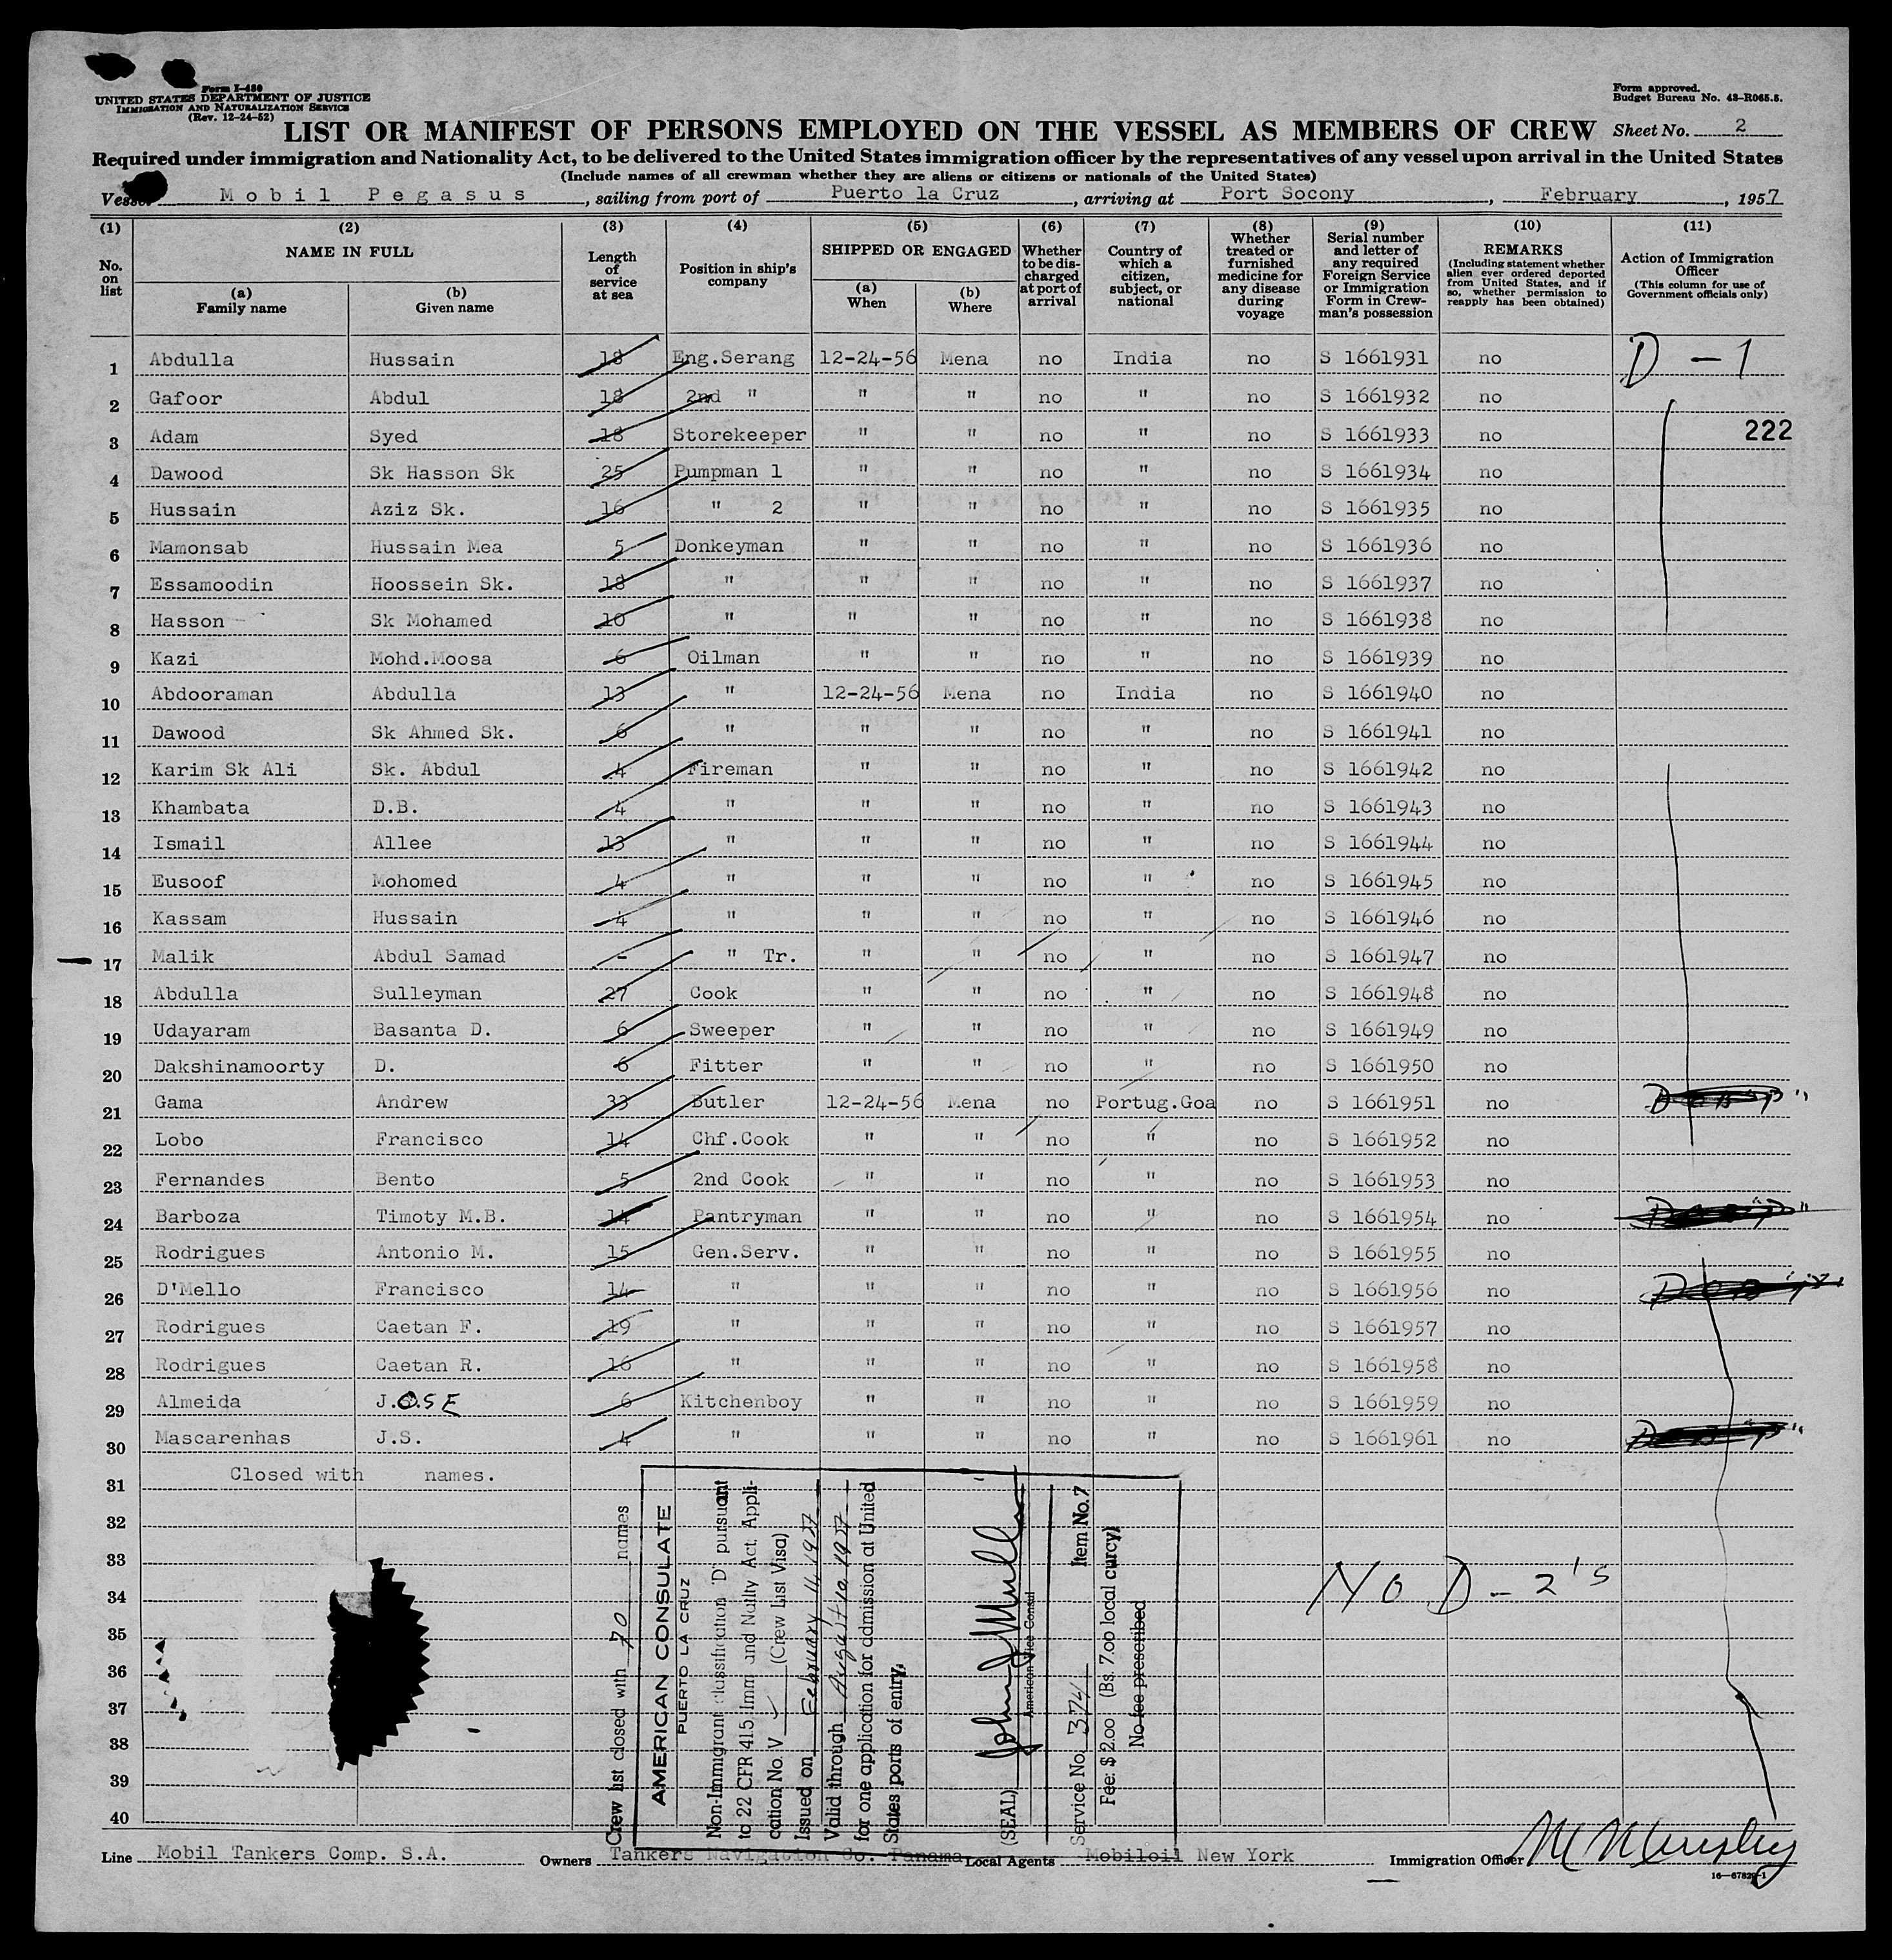 Form I-480
UNITED STATES DEPARTMENT OF JUSTICE
IMMIGRATION AND NATURALIZATION SERVICE
(Rev. 12-24-52)
Form approved.
Budget Bureau No. 43-R065.5.
LIST OR MANIFEST OF PERSONS EMPLOYED ON THE VESSEL AS MEMBERS OF CREW Sheet No. 2
Required under immigration and Nationality Act, to be delivered to the United States immigration officer by the representatives of any vessel upon arrival in the United States
(Include names of all crewman whether they are aliens or citizens or nationals of the United States)
Vessel Mobil Pegasus, sailing from port of Puerto la Cruz, arriving at Port Socony, February, 1957
(1) No. on list
(2) NAME IN FULL
(a) Family name
(b) Given name
(3) Length of service at sea
(4) Position in ship's company
(5) SHIPPED OR ENGAGED
(a) When
(b) Where
(6) Whether to be discharged at port of arrival
(7) Country of which a citizen, subject, or national
(8) Whether treated or furnished medicine for any disease during voyage
(9) Serial number and letter of any required Foreign Service or Immigration Form in Crewman's possession
(10) REMARKS (Including statement whether alien ever ordered deported from United States, and if so, whether permission to reapply has been obtained)
(11) Action of Immigration Officer (This column for use of Government officials only)
1 Abdulla Hussain 18 Eng.Serang 12-24-56 Mena no India no S 1661931 no D-1
2 Gafoor Abdul 18 2nd " " " no " no S 1661932 no
3 Adam Syed 18 Storekeeper " " no " no S 1661933 no 222
4 Dawood Sk Hasson Sk 25 Pumpman 1 " " no " no S 1661934 no
5 Hussain Aziz Sk. 16 " 2 " " no " no S 1661935 no
6 Mamonsab Hussain Mea 5 Donkeyman " " no " no S 1661936 no
7 Essamoodin Hoossein Sk. 18 " " " no " no S 1661937 no
8 Hasson Sk Mohamed 10 " " " no " no S 1661938 no
9 Kazi Mohd.Moosa 6 Oilman " " no " no S 1661939 no
10 Abdooraman Abdulla 13 " 12-24-56 Mena no India no S 1661940 no
11 Dawood Sk Ahmed Sk. 6 " " " no " no S 1661941 no
12 Karim Sk Ali Sk. Abdul 4 Fireman " " no " no S 1661942 no
13 Khambata D.B. 4 " " " no " no S 1661943 no
14 Ismail Allee 13 " " " no " no S 1661944 no
15 Eusoof Mohomed 4 " " " no " no S 1661945 no
16 Kassam Hussain 4 " " " no " no S 1661946 no
17 Malik Abdul Samad - " Tr. " " no " no S 1661947 no
18 Abdulla Sulleyman 27 Cook " " no " no S 1661948 no
19 Udayaram Basanta D. 6 Sweeper " " no " no S 1661949 no
20 Dakshinamoorty D. 6 Fitter " " no " no S 1661950 no
21 Gama Andrew 33 Butler 12-24-56 Mena no Portug.Goa no S 1661951 no
22 Lobo Francisco 14 Chf.Cook " " no " no S 1661952 no
23 Fernandes Bento 5 2nd Cook " " no " no S 1661953 no
24 Barboza Timoty M.B. 14 Pantryman " " no " no S 1661954 no
25 Rodrigues Antonio M. 15 Gen.Serv. " " no " no S 1661955 no
26 D'Mello Francisco 14 " " " no " no S 1661956 no
27 Rodrigues Caetan F. 19 " " " no " no S 1661957 no
28 Rodrigues Caetan R. 16 " " " no " no S 1661958 no
29 Almeida J.OSE 6 Kitchenboy " " no " no S 1661959 no
30 Mascarenhas J.S. 4 " " " no " no S 1661961 no
31 Closed with names.
32
33
34
35
36
37
38
39
40
NO D-2's
Crew list closed with 70 names
AMERICAN CONSULATE
PUERTO LA CRUZ
Non-Immigrant classification "D" pursuant
to 22 CFR 415 Imm and Natlty Act, Appli-
cation No. V (Crew List Visa)
Issued on February 14 1957
Valid through August 1957
for one application for admission at United
States ports of entry.
(SEAL)
American Vice Consul
Service No. 374 Item No. 7
Fee: $ 2.00 (Bs. 7.00 local curcy)
No fee prescribed
Line Mobil Tankers Comp. S.A. Owners Tankers Navigation Co. Panama Local Agents Mobiloil New York Immigration Officer